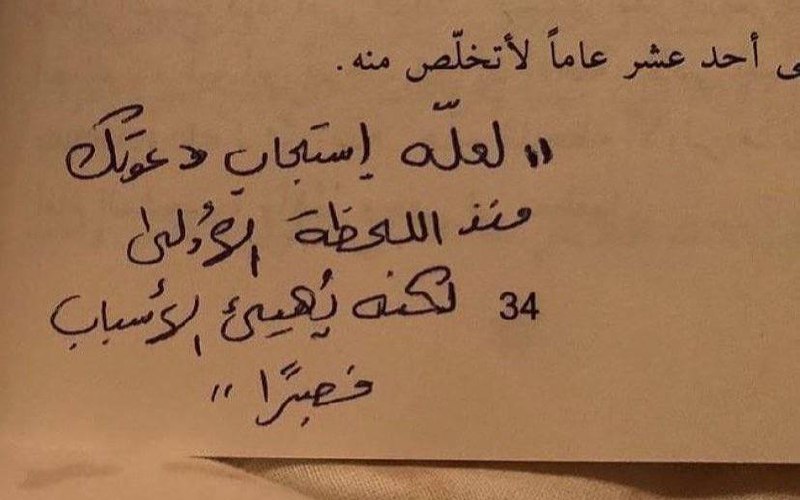 أحد عشر عاماً لأتخلّص منه.
" لعلّه إستجاب دعوتك
منذ اللحظة الأولى
34 لكنه يُهيئ الأسباب
فصبرًا "